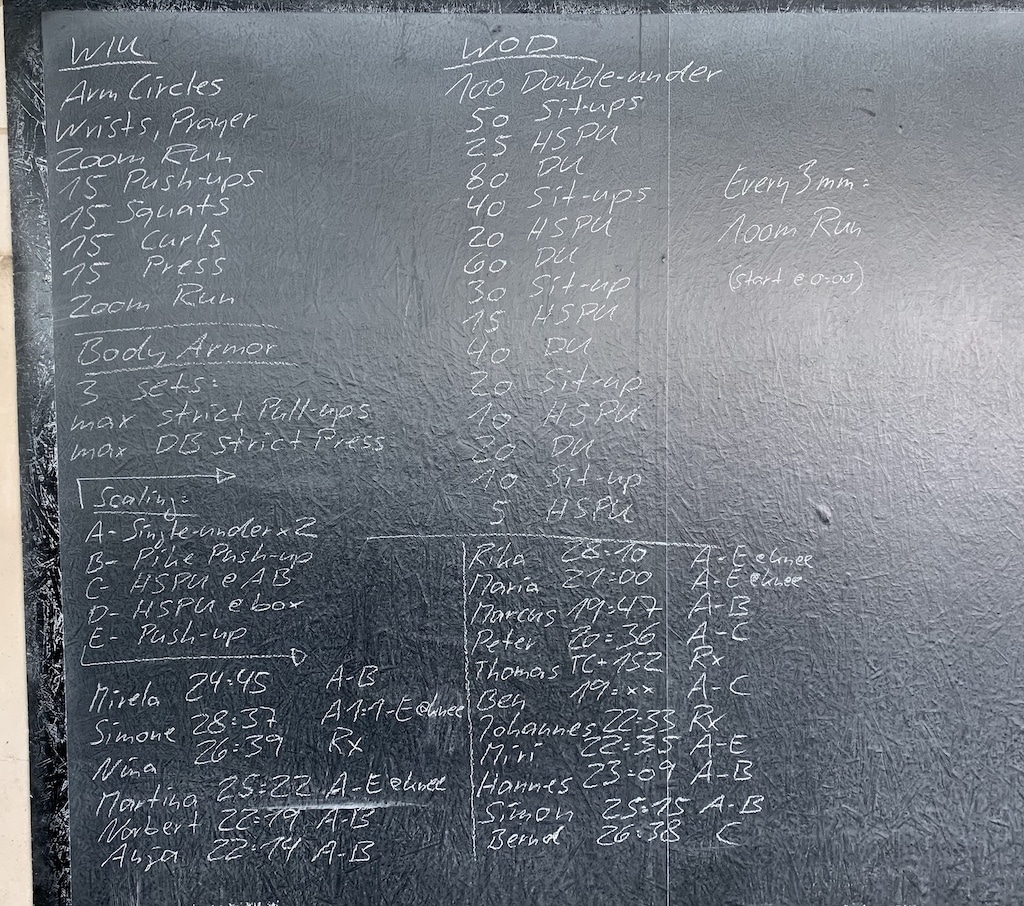 WU
Arm Circles
Wrists, Prayer
200m Run
15 Push-ups
15 Squats
15 Curls
15 Press
200m Run
Body Armor
3 sets:
max strict Pull-ups
max DB Strict Press
Scaling:
A- Single-under x2
B- Pike Push-up
C- HSPU @ AB
D- HSPU @ box
E- Push-up
Mirela 24:45 A-B
Simone 28:37 A1:1-E @knee
Nina 26:39 Rx
Martina 25:22 A-E @knee
Norbert 22:19 A-B
Anja 22:14 A-B
WOD
100 Double-under
50 Sit-ups
25 HSPU
80 DU
40 Sit-ups
20 HSPU
60 DU
30 Sit-up
15 HSPU
40 DU
20 Sit-up
10 HSPU
20 DU
10 Sit-up
5 HSPU
Every 3min:
100m Run
(start @ 0:00)
Rika 28:10 A-E @knee
Maria 21:00 A-E @knee
Marcus 19:47 A-B
Peter 20:36 A-C
Thomas TC+152 Rx
Ben 19:xx A-C
Johannes 22:33 Rx
Miri 22:35 A-E
Hannes 23:09 A-B
Simon 25:15 A-B
Bernd 26:38 C